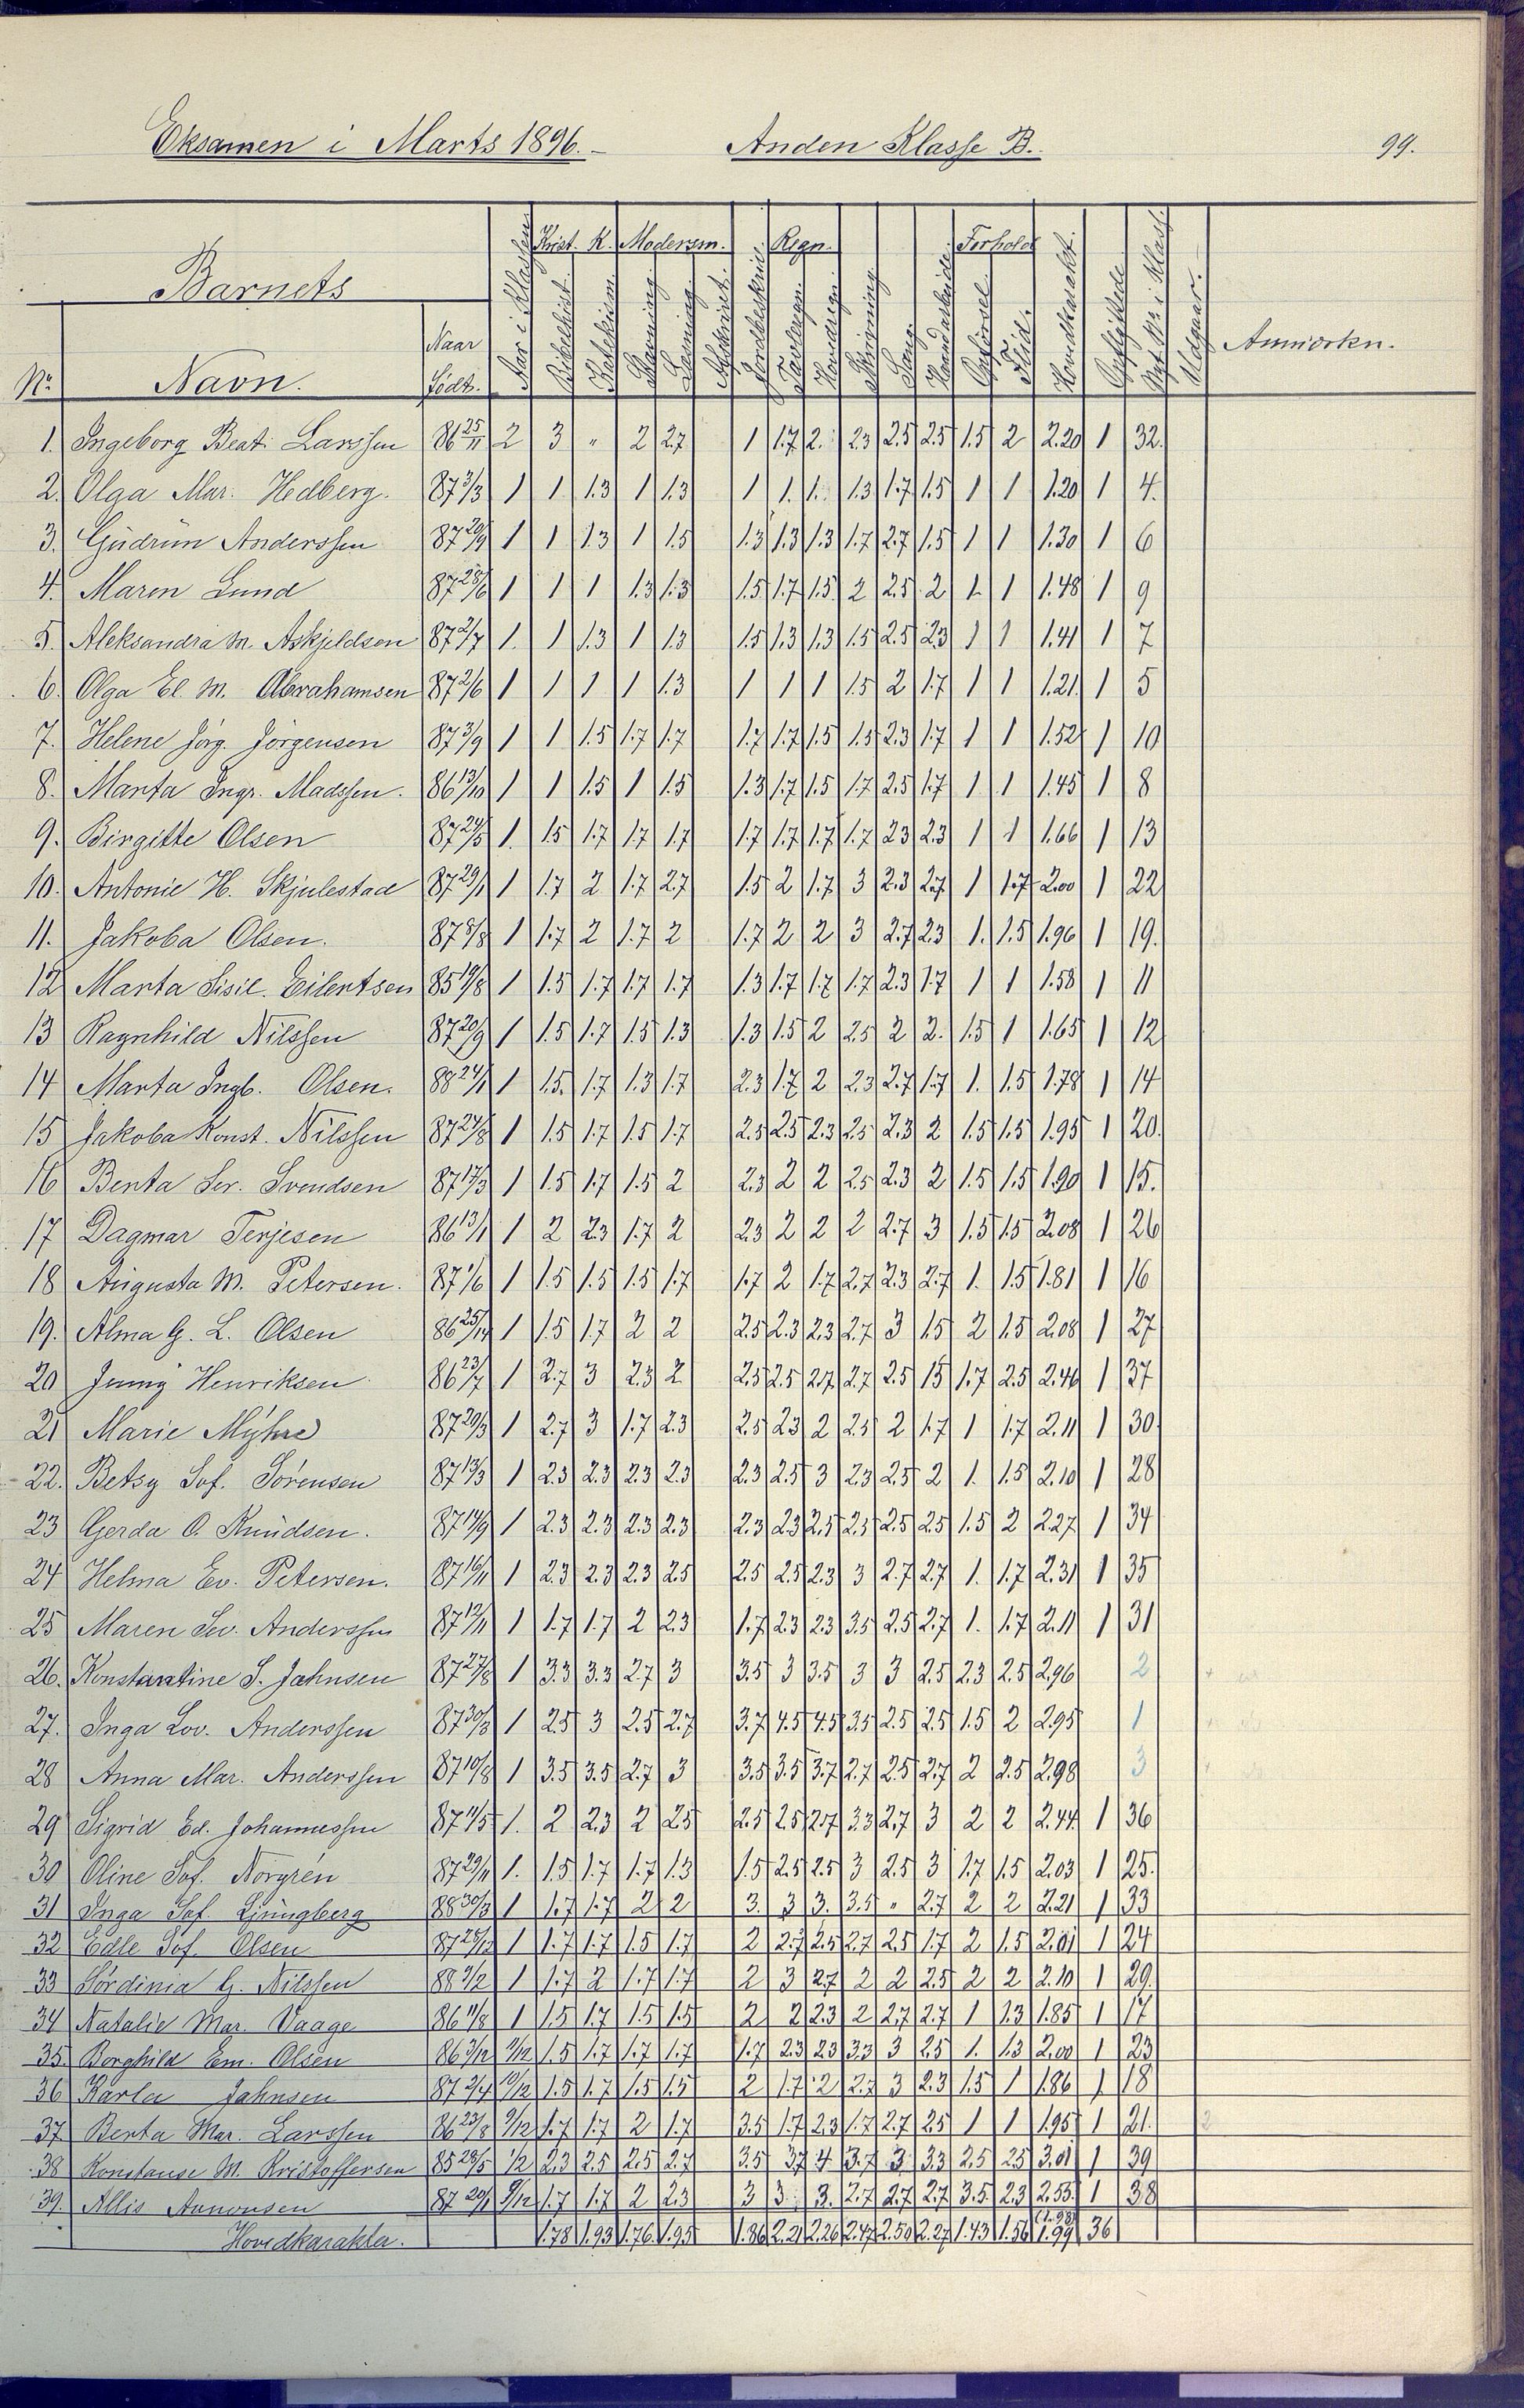 Eksamen i Marts 1896.- Anden Klasse B. 99.
Barnets Krist. K. Modersm. Regn. Forhold
Nr. Navn. Naar Født. Aar i Klassen Bibelhist. Katekism. Stavning Læsning Afskrivt. Jordbeskriv. Tavleregn. Hovedregn. Skrivning Sang Haandarbeide Opførsel Flid. Hovedkarakt. Opflyttede Nyt Nr. i Klass. Udgaar. Anmærkn.
1. Ingeborg Beat. Larssen 86 25/11 2 3 " 2 2.7 1 1.7 2. 2.3 2.5 2.5 1.5 2 2.20 1 32.
2. Olga Mar. Hedberg. 87 3/3 1 1 1.3 1 1.3 1 1. 1. 1.3 1.7 1.5 1 1 1.20 1 4.
3. Gudrun Anderssen 87 20/9 1 1 1.3 1 1.5 1.3 1.3 1.3 1.7 2.7 1.5 1 1 1.30 1 6
4. Maren Lund 87 28/6 1 1 1 1.3 1.3 1.5 1.7 1.5 2 2.5 2 1. 1 1.48 1 9
5. Aleksandra M. Askjeldsen 87 2/7 1. 1 1.3 1 1.3 1.5 1.3 1.3 1.5 2.5 2.3 1 1 1.41 1 7
6. Olga El. M. Abrahamsen 87 2/6 1 1 1 1 1.3 1 1 1 1.5 2 1.7 1 1 1.21. 1 5
7. Helene Jörg. Jörgensen 87 3/9 1 1 1.5 1.7 1.7 1.7 1.7 1.5 1.5 2.3 1.7 1 1 1.52 1 10
8. Marta Ingr. Madssen. 86 13/10 1 1 1.5 1 1.5 1.3 1.7 1.5 1.7 2.5 1.7 1 1 1.45 1 8
9. Birgitte Olsen 87 24/5 1. 1.5 1.7 1.7 1.7 1.7 1.7 1.7 1.7 2.3 2.3 1 1 1.66 1 13
10. Antonie H. Skjulestad 87 29/1 1 1.7 2 1.7 2.7 1.5 2 1.7 3 2.3 2.7 1 1.7 2.00 1 22
11. Jakoba Olsen. 87 8/8 1 1.7 2 1.7 2 1.7 2 2 3 2.7 2.3 1. 1.5 1.96 1 19.
12 Marta Sisil. Eilertsen 85 19/8 1 1.5 1.7 1.7 1.7 1.3 1.7 1.7 1.7 2.3 1.7 1 1 1.58 1 11
13 Ragnhild Nilssen 87 20/9 1 1.5 1.7 1.5 1.3 1.3 1.5 2 2.5 2 2. 1.5 1 1.65 1 12
14 Marta Ingb. Olsen. 88 24/1 1 1.5. 1.7 1.3 1.7 2.3 1.7 2 2.3 2.7 1.7 1. 1.5 1.78 1 14
15 Jakoba Konst. Nilssen 87 24/8 1 1.5 1.7 1.5 1.7 2.5 2.5 2.3 2.5 2.3 2 1.5 1.5 1.95 1 20.
16 Berta Ser. Svendsen 87 17/3 1 1.5 1.7 1.5 2 2.3 2 2 2.5 2.3 2 1.5 1.5 1.90 1 15.
17 Dagmar Terjesen 86 13/1 1 2 2.3 1.7 2 2.3 2 2 2 2.7 3 1.5 1.5 2.08 1 26
18 Augusta M. Petersen. 87 1/6 1 1.5 1.5 1.5 1.7 1.7 2 1.7 2.7 2.3 2.7 1. 1.5 1.81 1 16
19. Alma G. L. Olsen 86 25/14 1 1.5 1.7 2 2 2.5 2.3 2.3 2.7 3 1.5 2 1.5 2.08 1 27
20 Jenny Henriksen 86 23/7 1 2.7 3 2.3 2 2.5 2.5 2.7 2.7 2.5 1.5 1.7 2.5 2.46 1 37
21 Marie Myhre 87 29/3 1 2.7 3 1.7 2.3 2.5 2.3 2 2.5 2 1.7 1 1.7 2.11 1 30
22. Betsy Sof. Sörensen 87 13/3 1 2.3 2.3 2.3 2.3 2.3 2.5 3 2.3 2.5 2 1. 1.5 2.10 1 28
23 Gerda O. Knudsen. 87 14/9 1 2.3 2.3 2.3 2.3 2.3 2.3 2.5 2.5 2.5 2.5 1.5 2 2.27 1 34
24 Helma Ev. Petersen. 87 16/11 1 2.3 2.3 2.3 2.5 2.5 2.5 2.3 3 2.7 2.7 1. 1.7 2.31 1 35
25 Maren Sev. Anderssen 87 12/11 1 1.7 1.7 2 2.3 1.7 2.3 2.3 3.5 2.5 2.7 1. 1.7 2.11 1 31
26. Konstantine S. Jahnsen 87 27/8 1 3.3 3.3 2.7 3 3.5 3 3.5 3 3 2.5 2.3 2.5 2.96 2
27. Inga Lov. Anderssen 87 30/3 1 2.5 3 2.5 2.7 3.7 4.5 4.5 3.5 2.5 2.5 1.5 2 2.95 1
28 Anna Mar. Anderssen 87 10/8 1 3.5 3.5 2.7 3 3.5 3.5 3.7 2.7 2.5 2.7 2 2.5 2.98 3
29 Sigrid Ed. Johannessen 87 11/5 1. 2 2.3 2 2.5 2.5 2.5 2.7 3.3 2.7 3 2 2 2.44. 1 36
30 Oline Sof. Norgrén 87 29/11 1. 1.5 1.7 1.7 1.3 1.5 2.5 2.5 3 2.5 3 1.7 1.5 2.03 1 25.
31 Inga Sof. Ljungberg 88 30/3 1 1.7 1.7 2 2 3. 3 3. 3.5 " 2.7 2 2 2.21 1 33
32 Edle Sof. Olsen 87 28/12 1 1.7 1.7 1.5 1.7 2 2.7 2.5 2.7 2.5 1.7 2 1.5 2.01 1 24
33 Sördinia G. Nilssen 88 3/2 1 1.7 2 1.7 1.7 2 3 2.7 2 2 2.5 2 2 2.10 1 29.
34 Natalie Mar. Vaage 86 11/8 1 1.5 1.7 1.5 1.5 2 2 2.3 2 2.7 2.7 1 1.3 1.85 1 17
35. Borghild Em. Olsen 86 3/12 9/12 1.5 1.7 1.7 1.7 1.7 2.3 2.3 3.3 3 2.5 1. 1.3 2.00 1 23
36 Karla Jahnsen 87 2/4 10/12 1.5 1.7 1.5 1.5 2 1.7 2 2.7 3 2.3 1.5 1 1.86 1 18
37 Berta Mar. Larssen 86 23/8 9/12 1.7 1.7 2 1.7 3.5 1.7 2.3 1.7 2.7 2.5 1 1 1.95 1 21.
38 Konstanse M. Kristoffersen 85 28/5 1/2 2.3 2.5 2.5 2.7 3.5 3.7 4 3.7 3 3.3 2.5 2.5 3.01 1 39
39. Allis Aanonsen 87 20/1 9/12 1.7 1.7 2 2.3 3 3 3. 2.7 2.7 2.7 3.5 2.3 2.53. 1 38
Hovedkarakter. 1.78 1.93 1.76. 1.95 1.86 2.21 2.26 2.47 2.50 2.27 1.43 1.56 (1.98) 1.99 36